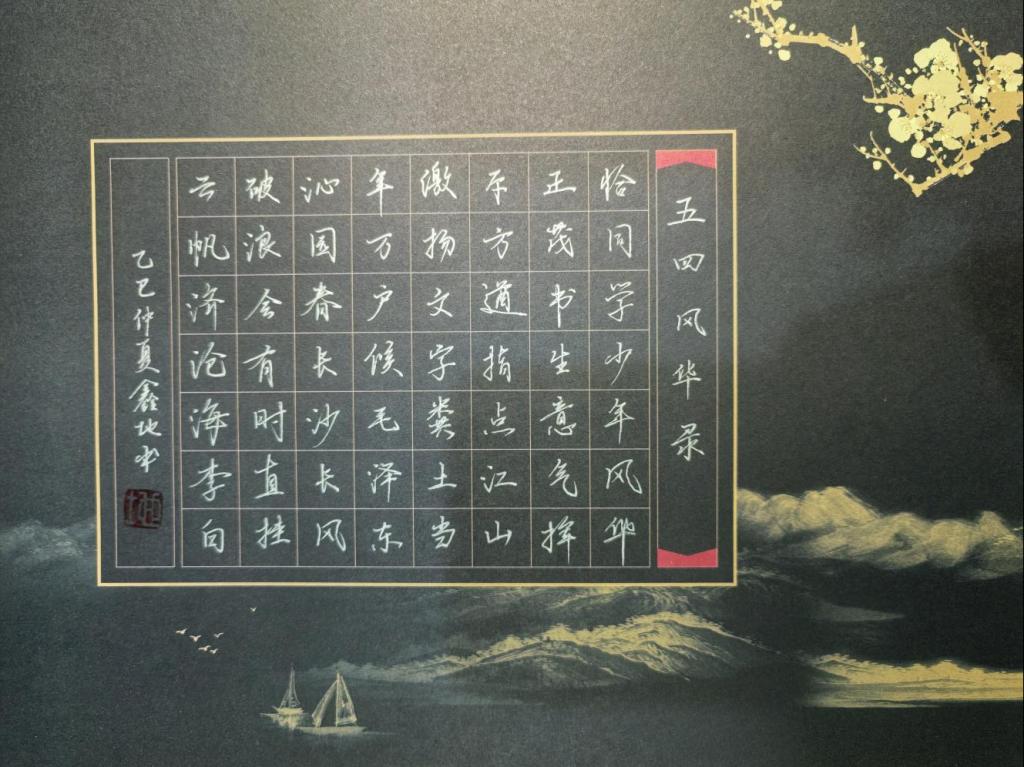 五四风华录
恰同学少年风华
正茂书生意气挥
斥方遒指点江山
激扬文字粪土当
年万户候毛泽东
沁园春长沙长风
破浪会有时直挂
云帆济沧海李白
乙巳仲夏鑫地书